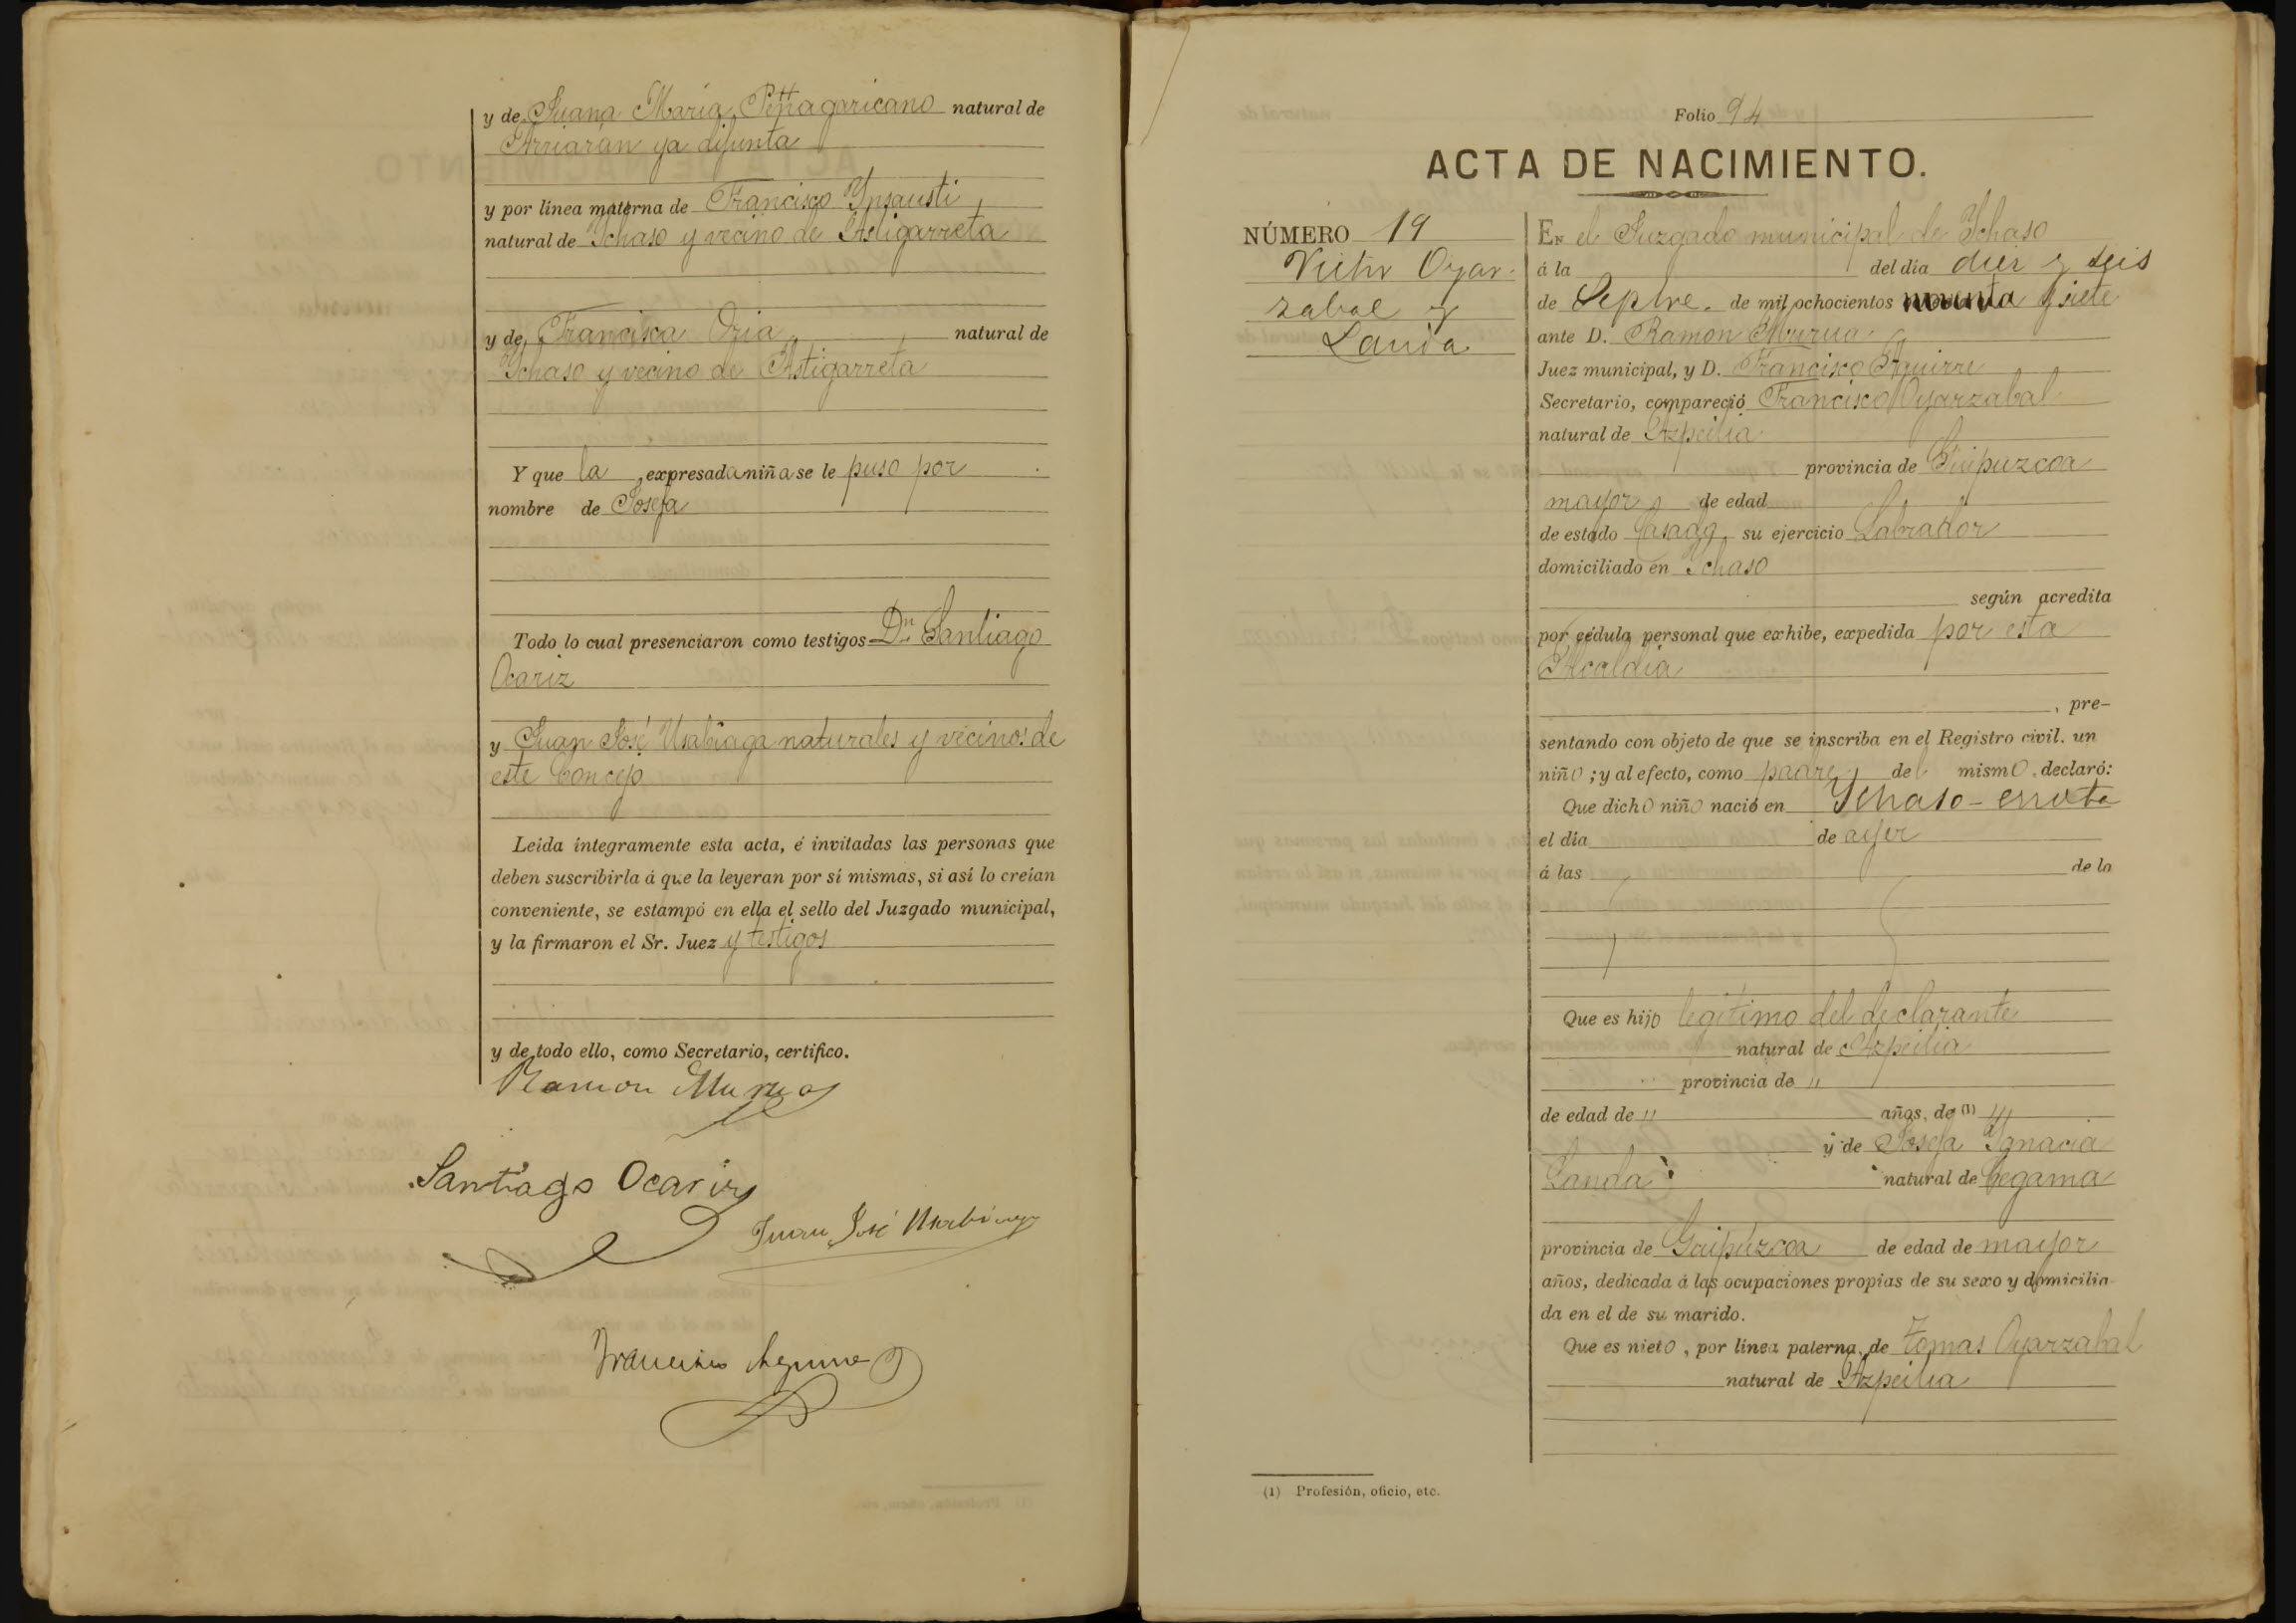 y de Juana María Peñagaricano natural de
Arriarán ya difunta
y por línea materna de Francisco Ynsausti
natural de Ychaso y vecino de Astigarreta
y de Francisca Oria natural de
Ychaso y vecino de Astigarreta
Y que la expresada niña se le puso por
nombre de Josefa
Todo lo cual presenciaron como testigos Dn Santiago
Ocariz
y Juan José Usabiaga naturales y vecinos de
este Concejo
Leida íntegramente esta acta, é invitadas las personas que
deben suscribirla á que la leyeran por sí mismas, si así lo creían
conveniente, se estampó en ella el sello del Juzgado municipal,
y la firmaron el Sr. Juez y testigos
y de todo ello, como Secretario, certifico.
Ramon Murua
Santiago Ocariz
Juan José Usabiaga
Francisco Aguirre
Folio 94
ACTA DE NACIMIENTO.
NÚMERO 19
Victor Oyar-
zabal y
Landa
En el Juzgado municipal de Ychaso
á la del día diez y seis
de Sepbre. de mil ochocientos noventa y siete
ante D. Ramon Murua
Juez municipal, y D. Francisco Aguirre
Secretario, compareció Francisco Oyarzabal
natural de Azpeitia
provincia de Guipuzcoa
mayor de edad
de estado Casado su ejercicio Labrador
domiciliado en Ychaso
según acredita
por cédula personal que exhibe, expedida por esta
Alcaldia
, pre-
sentando con objeto de que se inscriba en el Registro civil. un
niño ; y al efecto, como padre del mismo declaró:
Que dicho niño nació en Ychaso-errota
el día de ayer
á las de la
Que es hijo legítimo del declarante
natural de Azpeitia
provincia de "
de edad de " años, de (1) "
y de Josefa Ygnacia
Landa natural de Cegama
provincia de Guipúzcoa de edad de mayor
años, dedicada á las ocupaciones propias de su sexo y domicilia-
da en el de su marido.
Que es nieto, por línea paterna, de Tomas Oyarzabal
natural de Azpeitia
(1) Profesión, oficio, etc.